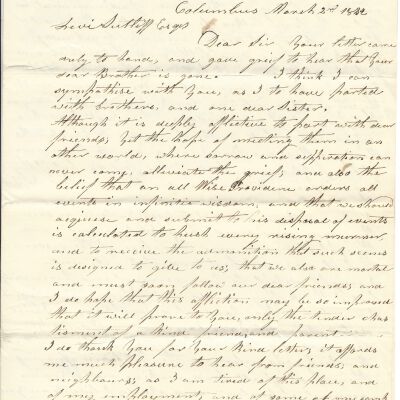 Columbus March 2nd 1842
Levi Sutliff Esqr
Dear Sir Your letter came
duly to hand, and gave grief to hear that Your
dear Brother is gone. I think I can
sympathise with You, as I to have parted
with brothers, and one dear Sister.
Although it is deeply afflictive to part with dear
friends, Yet the hope of meeting them in an
other world, where sorrow and seperation can
never come, alleviate the grief, and also the
belief that an all Wise Providence orders all
events in infinitie wisdom, and that we should
acquiese and submit to his disposal of events
is calculated to hush every rising murmur
and to receive the admonition that such scenes
is designed to give to us, that we also are mortal
and must soon follow our dear friends, and
I do hope that this affliction may be so improved
that it will prove to You, only the tender chas
tisment of a kind friend, and parent
I do thank You for Your Kind letter, it affords
me much pleasure to hear from friends, and
neighbours, as I am tired of this place, and
of my employment, and of some of my comp